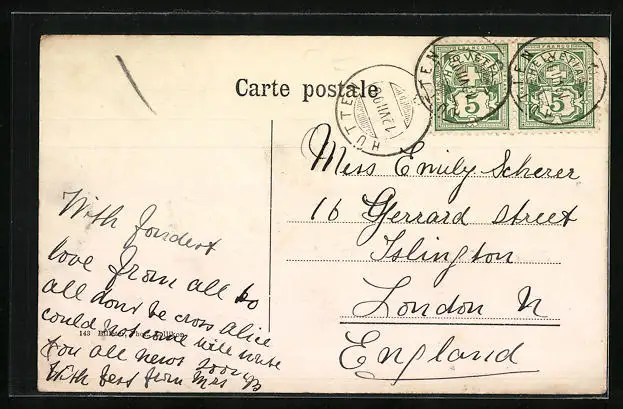 Carte postale
HÜTTEN
12 VII 08
HÜTTEN
FRANCO
HELVETIA
5
HÜTTEN
FRANCO
HELVETIA
5
Miss Emily Scherer
16 Gerrard street
Islington
London N
England
With fondest
love from all to
all dont be cross Alice
could not come will write
you all news soon
With best from Mrs
143